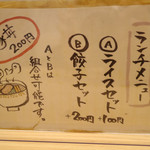 ランチメニュー
Ⓐライスセット
+100円
Ⓑ餃子セット
+200円
AとBは
組合せ可能です。
丼
200円